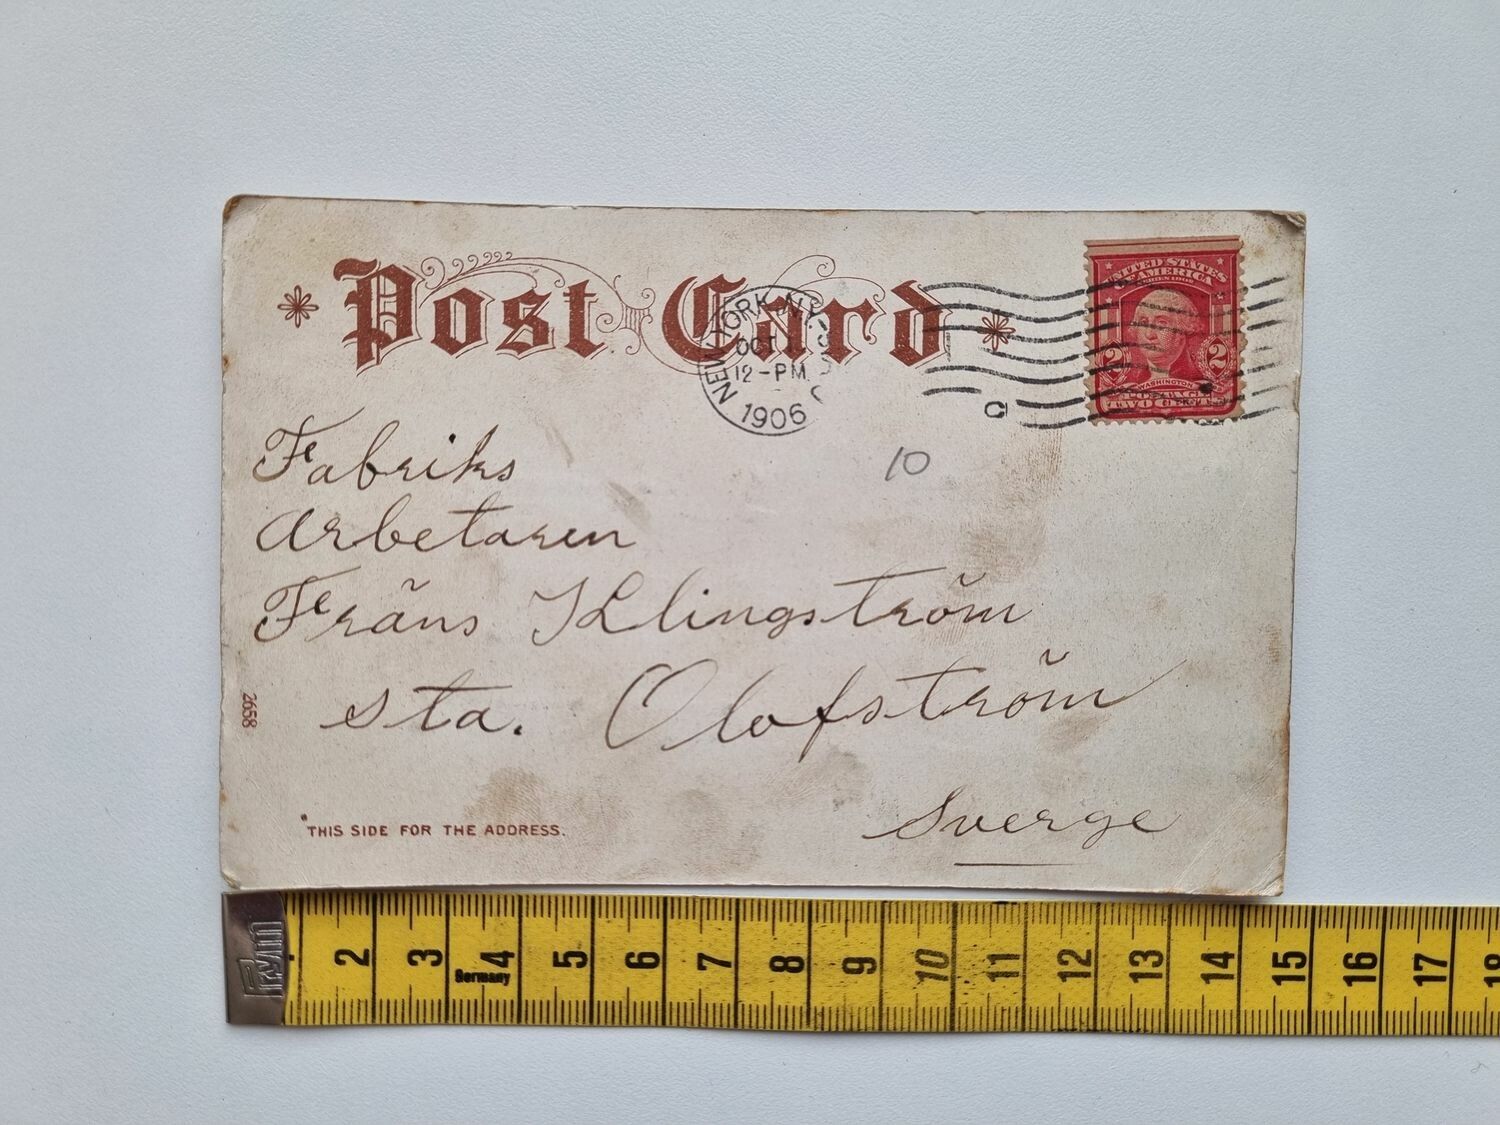 Post Card
NEW YORK, N.Y.
OCT
12-PM
1906
UNITED STATES
OF AMERICA
2 2
WASHINGTON
TWO CENTS
10
Fabriks
Arbetaren
Fräns Klingström
sta. Olofström
Sverge
2658
THIS SIDE FOR THE ADDRESS.
PRYM 2 3 4 5 6 7 8 9 10 11 12 13 14 15 16 17 18
Germany